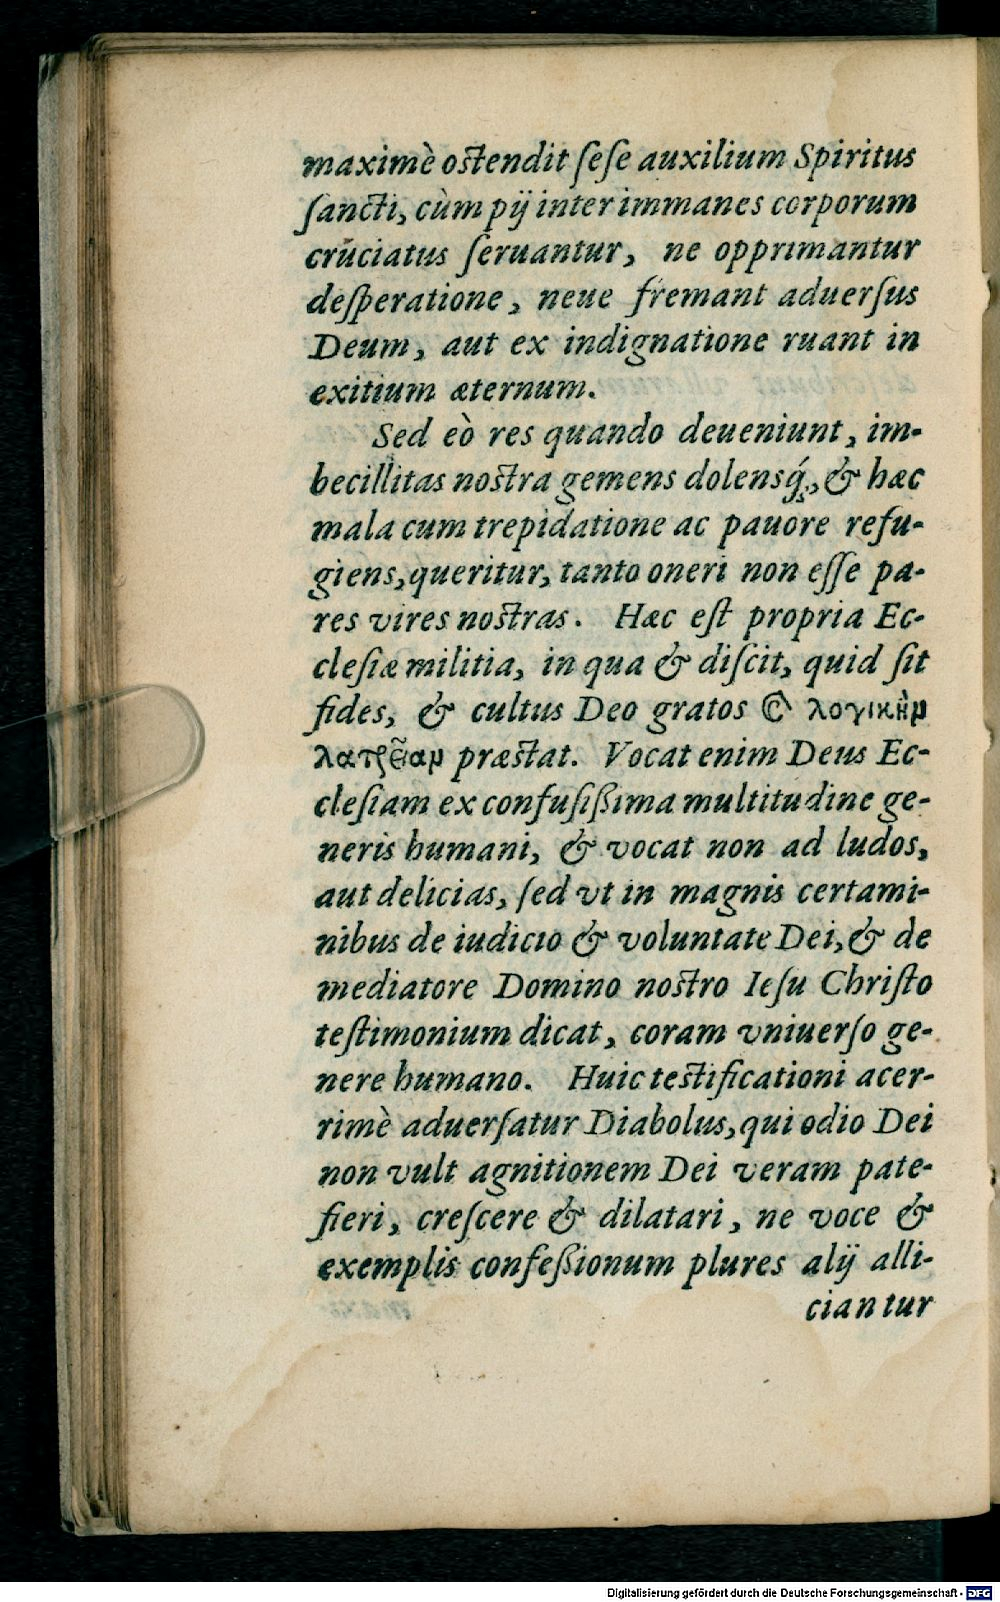 maximè ostendit ſeſe auxilium Spiritus
ſancti, cùm pij inter immanes corporum
cruciatus ſeruantur, ne opprimantur
deſperatione, neue fremant aduerſus
Deum, aut ex indignatione ruant in
exitium æternum.
Sed eò res quando deueniunt, im-
becillitas nostra gemens dolensq́;, & hæc
mala cum trepidatione ac pauore refu-
giens, queritur, tanto oneri non eſſe pa-
res vires nostras. Hæc eſt propria Ec-
cleſiæ militia, in qua & diſcit, quid ſit
fides, & cultus Deo gratos & λογικὴν
λατρείαν præstat. Vocat enim Deus Ec-
cleſiam ex confuſißima multitudine ge-
neris humani, & vocat non ad ludos,
aut delicias, ſed vt in magnis certami-
nibus de iudicio & voluntate Dei, & de
mediatore Domino nostro Ieſu Chriſto
teſtimonium dicat, coram vniuerſo ge-
nere humano. Huic testificationi acer-
rimè aduerſatur Diabolus, qui odio Dei
non vult agnitionem Dei veram pate-
fieri, creſcere & dilatari, ne voce &
exemplis confeßionum plures alij alli-
ciantur
Digitalisierung gefördert durch die Deutsche Forschungsgemeinschaft - DFG